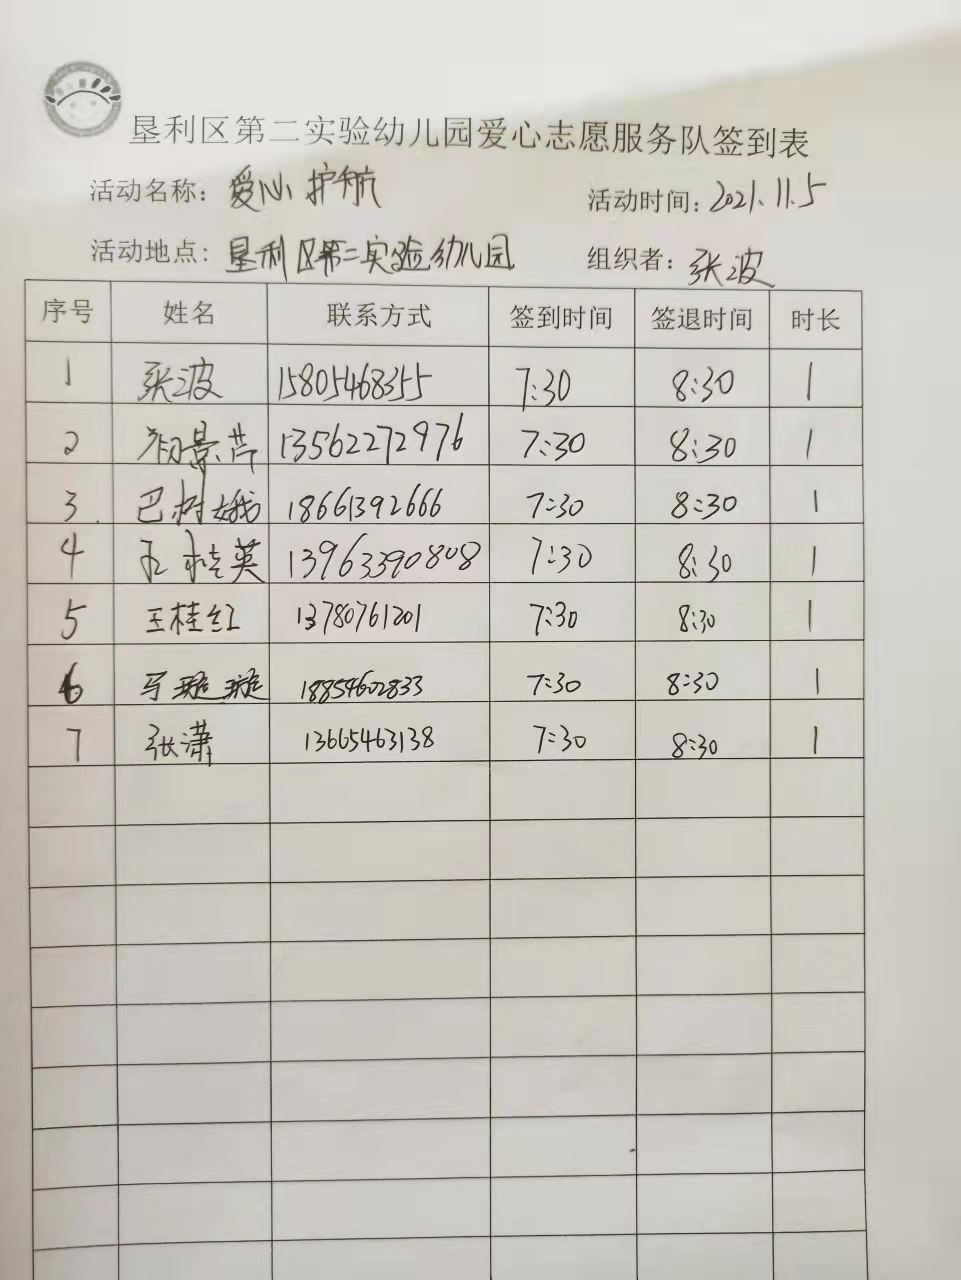 垦利区第二实验幼儿园爱心志愿服务队签到表
活动名称：爱心护航 活动时间：2021.11.5
活动地点：垦利区第二实验幼儿园 组织者：张波
序号 姓名 联系方式 签到时间 签退时间 时长
1 张波 15805468355 7:30 8:30 1
2 初景芹 13562272976 7:30 8:30 1
3. 巴树娥 18661392666 7:30 8:30 1
4 王桂英 13963390808 7:30 8:30 1
5 王桂红 13780761201 7:30 8:30 1
6 马璇璇 18854602833 7:30 8:30 1
7 张潇 13665463138 7:30 8:30 1